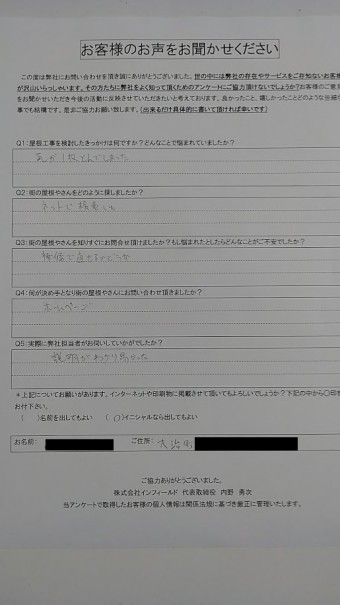 お客様のお声をお聞かせください
この度は弊社にお問い合わせを頂き誠にありがとうございました。世の中には弊社の存在やサービスをご存知ないお客様
が沢山いらっしゃいます。その方たちに弊社をよく知って頂くためのアンケートにご協力頂けないでしょうか？お客様のご意見
をお聞かせいただき今後の活動に反映させていただきたいと考えております。良かったこと、嬉しかったことどのような些細な
事でも結構です。是非ご協力お願い致します。（出来るだけ具体的に書いて頂ければ幸いです）
Q1：屋根工事を検討したきっかけは何ですか？どんなことで悩まれていましたか？
瓦が1枚とんでしまった
Q2：街の屋根やさんをどのように探しましたか？
ネットで検索して
Q3：街の屋根やさんを知りすぐにお問合せ頂けますか？もし悩まれたとしたらどんなことがご不安でしたか？
で直せるかどうか
Q4：何が決め手となり街の屋根やさんにお問い合わせ頂きましたか？
ホームページ
Q5：実際に弊社担当者がお伺いしていかがでしたか？
説明がわかり易かった
＊上記についてお願いがあります。インターネットや印刷物に掲載させて頂いてもよろしいでしょうか？下記の中から〇印を
お付下さい。
（　）名前を出してもよい　（〇）イニシャルなら出してもよい
お名前：　ご住所：
ご協力ありがとうございました。
株式会社インフィールド 代表取締役 内野 勇次
当アンケートで取得したお客様の個人情報は関係法規に基づき厳正に管理いたします。